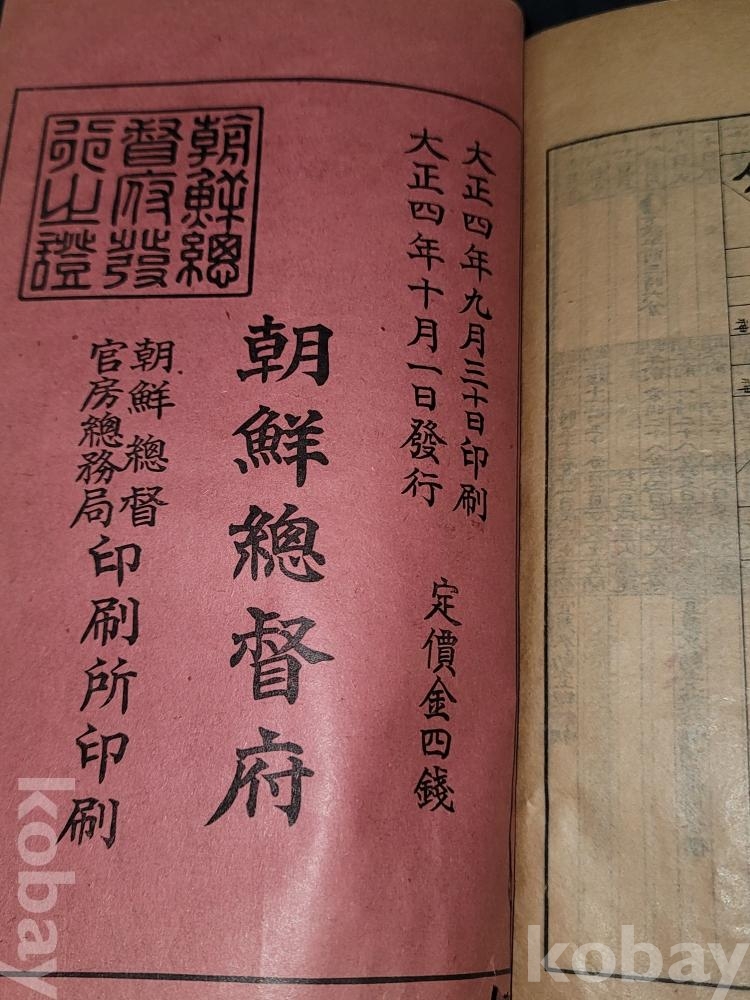 大正四年九月三十日印刷
大正四年十月一日發行
定價金四錢
朝鮮總督府
朝鮮總督府發行之證
朝鮮總督
官房總務局
印刷所印刷
kobay
kobay